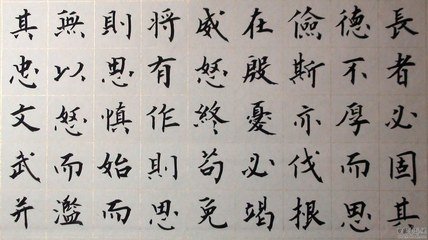 長者必固其
德不厚而思
儉斯亦伐根
在殷憂必竭
威怒終苟免
將有作則思
則思慎始而
無以怒而濫
其忠文武并